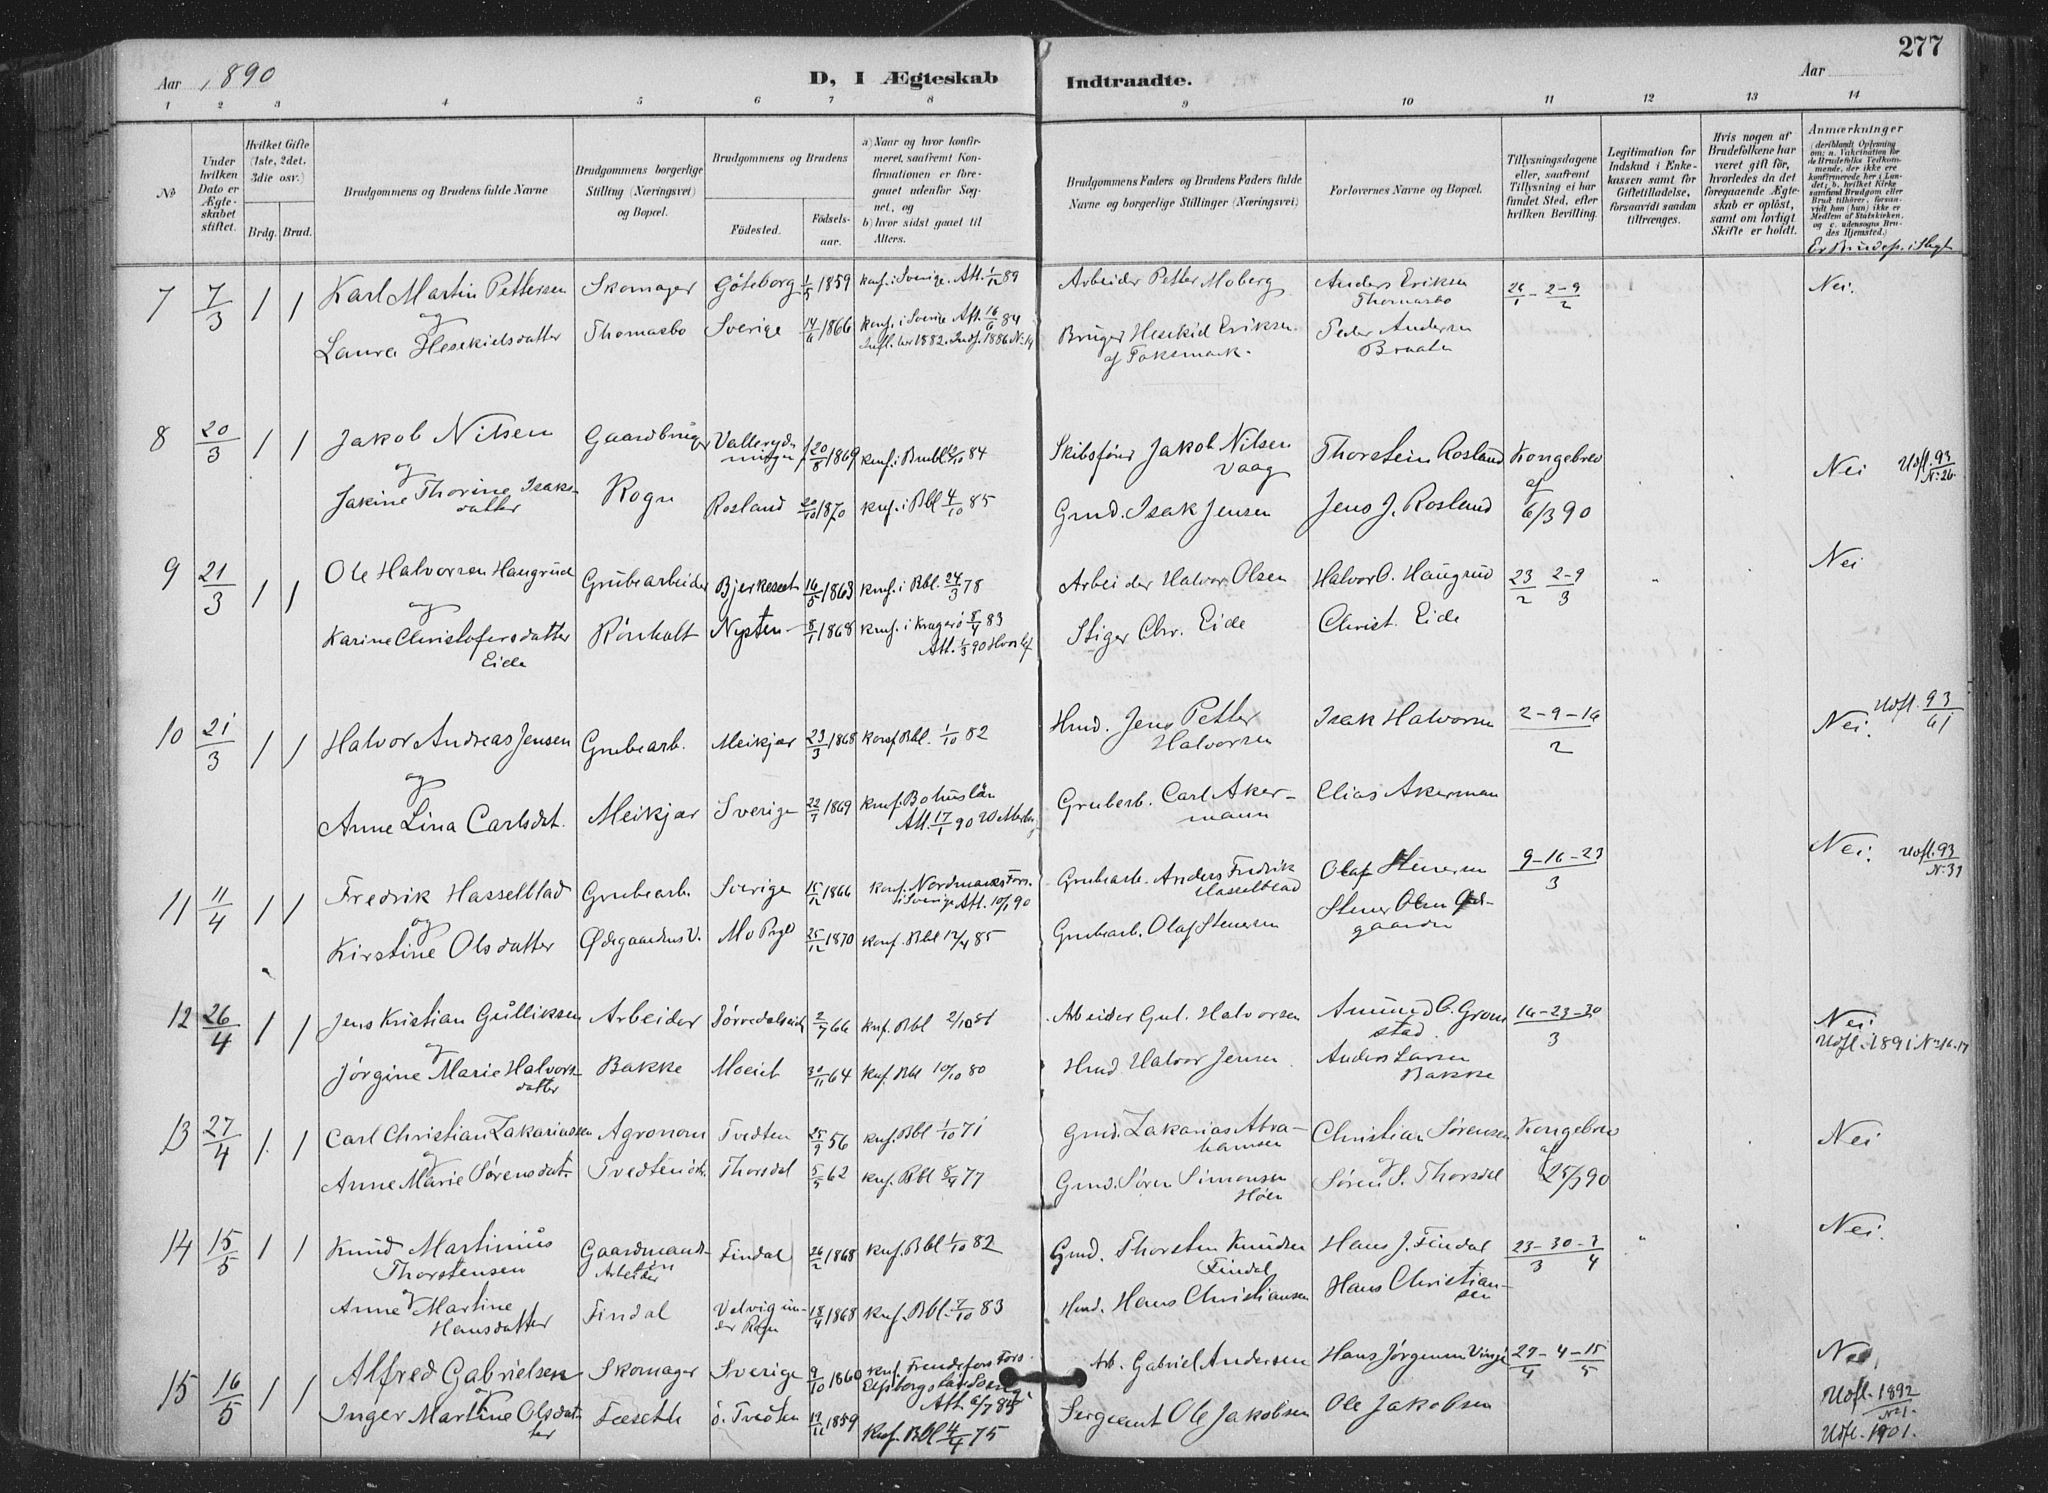 Aar 1890
D, I Ægteskab Indtraadte.
Aar
277
1 2 3 4 5 6 7 8 9 10 11 12 13 14
№
Under hvilken Dato er Ægteskabet stiftet.
Hvilket Gifte (1ste, 2det, 3die osv.)
Brdg. Brud.
Brudgommens og Brudens fulde Navne
Brudgommens borgerlige Stilling (Næringsvei) og Bopæl.
Brudgommens og Brudens
Fødested.
Fødselsaar.
a) Naar og hvor konfirmeret, saafremt Konfirmationen er foregaaet udenfor Sognet, og
b) hvor sidst gaaet til Alters.
Brudgommens Faders og Brudens Faders fulde Navne og borgerlige Stillinger (Næringsvei)
Forlovernes Navne og Bopæl.
Tillysningsdagene eller, saafremt Tillysning ei har fundet Sted, efter hvilken Bevilling.
Legitimation for Indskud i Enkekassen samt for Giftetilladelse, forsaavidt saadan tiltrænges.
Hvis nogen af Brudefolkene har været gift før, hvorledes da det foregaaende Ægteskab er opløst, samt om lovligt Skifte er holdt.
Anmærkninger (deriblandt Oplysning om: a. Vakcination for de Brudefolks Vedkommende, der ikke ere konfirmerede her i Landet; b. hvilket Kirkesamfund Brudgom eller Brud tilhører, forsaavidt han (hun) ikke er Medlem af Statskirken, og c. udensogns Brudes Hjemsted.)
Er Brudep. i Slegt
7 7/3 1 1 Karl Martin Pettersen Skomager Göteborg 1/5 1859 konf. i Sverige. Att. 1/12 89 Arbeider Petter Moberg Anders Eriksen Thomasbo 26/1 - 2-9/2 Nei.
og
Laura Hesekielsdatter Thomasbo Sverige 14/6 1866 konf. i Sverige Att. 16/6 84 Bruger Hesekiel Eriksen Peder Andersen
Indfl. her 1882. Indf. 1886 N: 14 af Foksmark. Braaten
8 20/3 1 1 Jakob Nilsen Gaardbruger 20/8 1869 konf. i Brubl 2/10 84 Skibsfører Jakob Nilsen Vaag Thorstein Rosland Kongebrev Nei Udfl. 93 N: 26
og af
Jakine Thorine Isaksdatter Rogn Rosland 20/10 1870 konf. i Bbl 4/10 85 Gmd. Isak Jensen Jens J. Rosland 6/3 90
9 21/3 1 1 Ole Halvorsen Haugrud Grubearbeider Bjerkeseet 16/5 1863 konf. i Bbl. 24/3 78 Arbeider Halvor Olsen Halvor O. Haugrud 23/2 2-9/3 " Nei
og
Karine Christofersdatter Eide Rönholt Nysten 8/1 1868 konf. i Kragerö 8/4 83 Stiger Chr. Eide Christ. Eide
Att. 1/3 90
10 21/3 1 1 Halvor Andreas Jensen Grubearb. Meikjær 23/3 1868 konf Bbl. 1/10 82 Hmd. Jens Petter Halvorsen Isak Halvorsen 2-9-16/2 Nei. Udfl. 93/61
og
Anne Lina Carlsdat. Meikjær Sverige 22/7 1869 konf. Bohuslän Grubearb. Carl Akermann Elias Akerman
Att. 17/1 90
11 11/4 1 1 Fredrik Hasselblad Grubearb. Sverige 15/12 1866 konf. Nordmarks Fors. i Sverige Att. 10/1 90 Grubearb. Anders Fredrik Hasselblad Olaf Stenersen 9-16-23/3 Nei. Udfl. 93 N: 39
og
Kirstine Olsdatter Ødegaardens V. Mo Prgld 25/12 1870 konf. Bbl 12/4 85 Grubearb. Olaf Stenersen Stener Olsen Ødegaarden
12 26/4 1 1 Jens Kristian Gulliksen Arbeider Tørredalseie 2/7 66 konf. Bbl 2/10 81 Arbeider Gul. Halvorsen Amund O. Gromstad 16-23-30/3 Nei
og Udfl. 1891 No 16-17
Jørgine Marie Halvorsdatter Bakke Moeiet 30/11 64 Knf. Bbl 10/10 80 Hmd Halvor Jensen Anders Larsen Bakke
13 27/4 1. 1 Carl Christian Zakariassen Agronom Tvedten 25/9 56 Knf. Bbl 1/10 71 Gmd. Zakarias Abrahamsen Christian Sørensen Kongebrev Nei
og af
Anne Marie Sørensdat. Tvedten Thorsdal 5/5 62 Knf. Bbl 8/4 77 Gmd. Søren Simonsen Høen Søren S. Thorsdal 25/3 90
14 15/5 1 1 Knud Martinius Thorstensen Gaardmandssøn Arbeider Findal 26/2 1868 Knf. Bbl 1/10 82 Gmd. Thorsten Knudsen Findal Hans J. Findal 23-30/3 - 3/4 " Nei.
og
Anne Martine Hansdatter Findal Valvig under Rogn 18/4 1868 Knf. Bbl. 7/10 83 Hmd. Hans Christiansen Hans Christiansen
15 16/5 1 1 Alfred Gabrielsen Skomager Sverige 9/10 1860 Knf. Frendefors Fors. Elfsborgs Län Att. 6/7 85 Arb. Gabriel Andersen Hans Jørgensen 27/4 - 4-15/5 Nei
og
Inger Martine Olsdatter Fæseth ö. Tvedten 19/11 1859 Knf. Bbl 4/4 75 Sergeant Ole Jakobsen Ole Jakobsen Udfl. 1892 No 1.
Udfl. 1901.